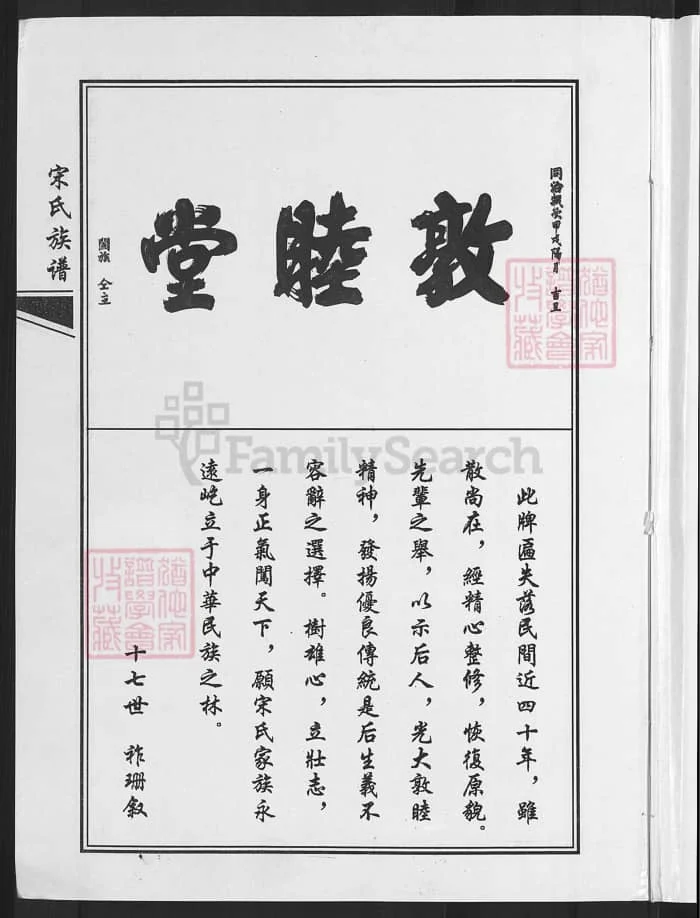 宋氏族谱
同治拾叁岁甲戌陽月 吉旦
敦睦堂
闔族 仝立
此牌匾失落民間近四十年，雖
散尚在，經精心整修，恢復原貌。
先輩之舉，以示后人，光大敦睦
精神，發揚優良傳統是后生義不
容辭之選擇。樹雄心，立壯志，
一身正氣闖天下，願宋氏家族永
遠屹立于中華民族之林。
十七世 祚珊叙
FamilySearch